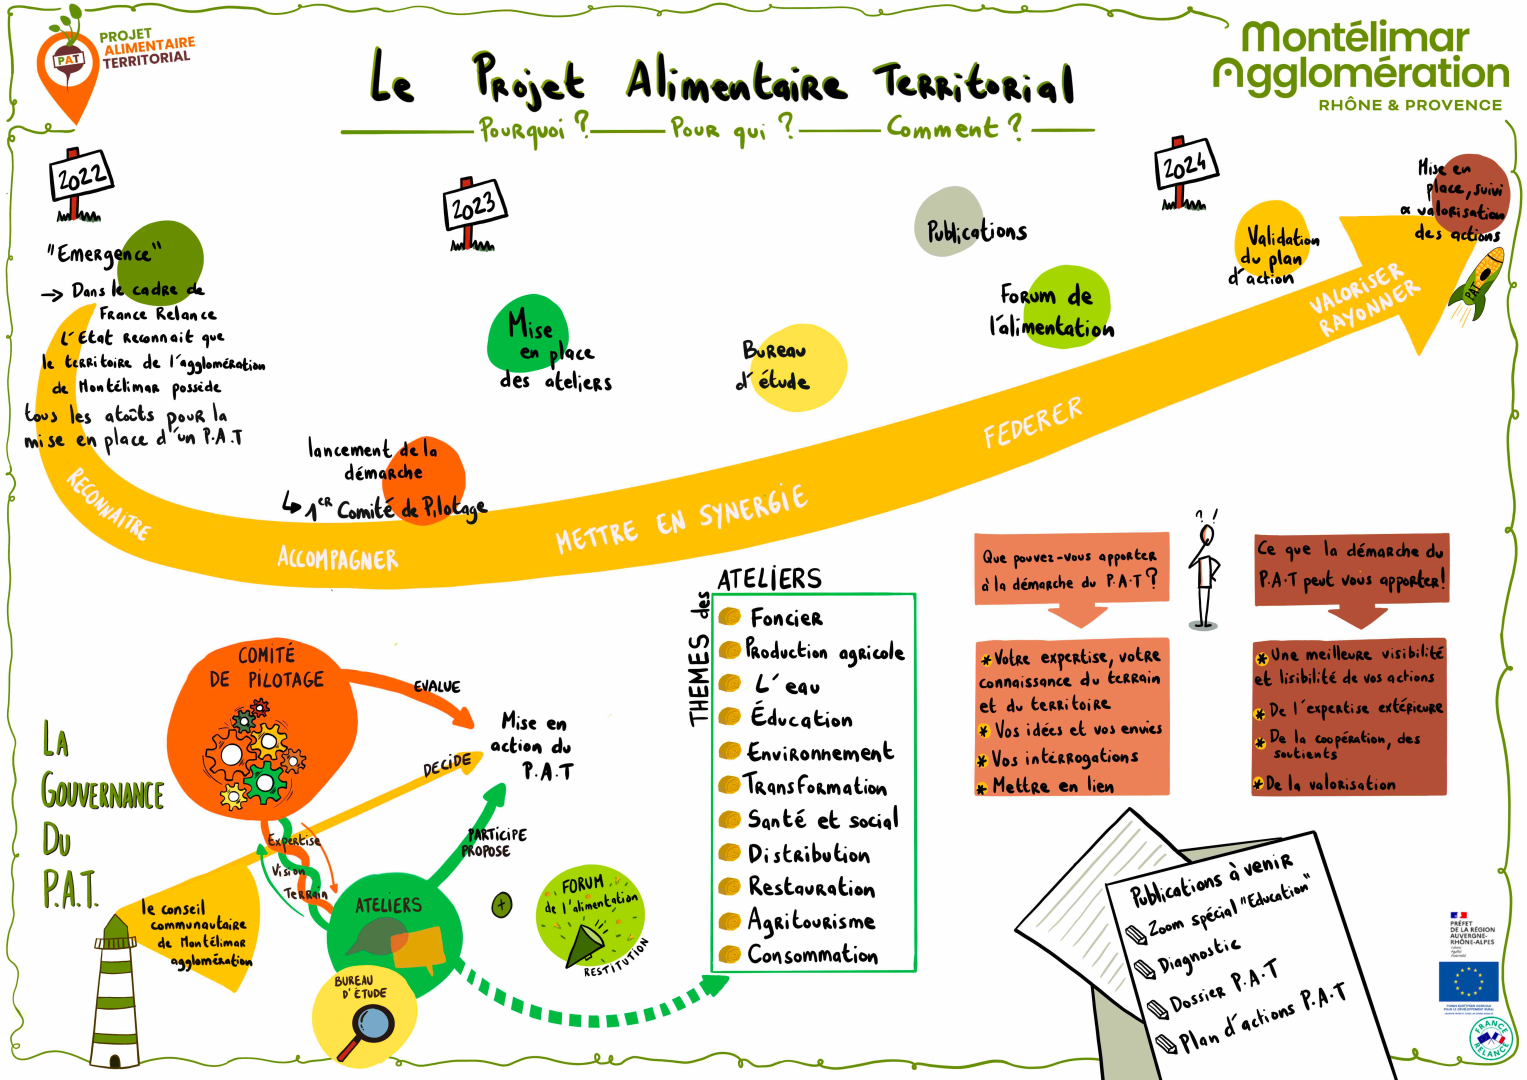 PROJET
ALIMENTAIRE
TERRITORIAL
PAT
Montélimar
Agglomération
RHÔNE & PROVENCE
Le Projet Alimentaire Territorial
Pourquoi ? Pour qui ? Comment ?
2022
"Emergence"
→ Dans le cadre de
France Relance
L'État reconnait que
le territoire de l'agglomération
de Montélimar possède
tous les atoûts pour la
mise en place d'un P.A.T
lancement de la
démarche
↳ 1er Comité de Pilotage
2023
Mise
en place
des ateliers
Bureau
d'étude
Publications
Forum de
l'alimentation
2024
Validation
du plan
d'action
Mise en
place, suivi
& valorisation
des actions
PAT
RECONNAITRE
ACCOMPAGNER
METTRE EN SYNERGIE
FEDERER
VALORISER
RAYONNER
LA
GOUVERNANCE
DU
P.A.T.
COMITÉ
DE PILOTAGE
EVALUE
DECIDE
PARTICIPE
PROPOSE
Mise en
action du
P.A.T
Expertise
Vision
Terrain
le conseil
communautaire
de Montélimar
agglomération
ATELIERS
BUREAU
D'ÉTUDE
+
FORUM
de l'alimentation
RESTITUTION
THEMES des
ATELIERS
Foncier
Production agricole
L'eau
Éducation
Environnement
Transformation
Santé et social
Distribution
Restauration
Agritourisme
Consommation
Que pouvez-vous apporter
à la démarche du P.A.T ?
* Votre expertise, votre
connaissance du terrain
et du territoire
* Vos idées et vos envies
* Vos interrogations
* Mettre en lien
? !
Ce que la démarche du
P.A.T peut vous apporter!
* Une meilleure visibilité
et lisibilité de vos actions
* De l'expertise extérieure
* De la coopération, des
soutients
* De la valorisation
Publications à venir
Zoom spécial "Education"
Diagnostic
Dossier P.A.T
Plan d'actions P.A.T
PRÉFET
DE LA RÉGION
AUVERGNE-
RHÔNE-ALPES
FRANCE
RELANCE